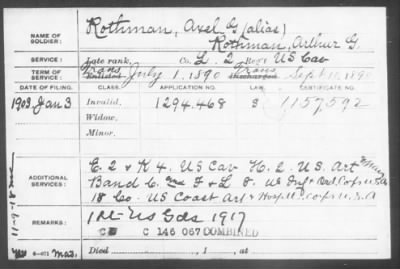 NAME OF SOLDIER: Rothman, Axel G (alias)
Rothman, Arthur G.
SERVICE: Late rank, Co. L. 2 Reg't US Cav
TERM OF SERVICE: Enlisted Trans July 1, 1890 Discharged Trans Sept 1890
DATE OF FILING. CLASS. APPLICATION NO. LAW. CERTIFICATE NO.
1903 Jan 3 Invalid, 1294.468 S 1157592
Widow,
Minor,
ADDITIONAL SERVICES: E. 2 & K 4. US Cav H. 2. U.S. Art
Band 6. & F & L 8. US Inf & Ord. Corps U.S.A
18 Co. US Coast Art & Hosp. Corps U.S.A
REMARKS: US Gds 1917
C C 146 067 COMBINED
Died , 1 , at
11-9-18